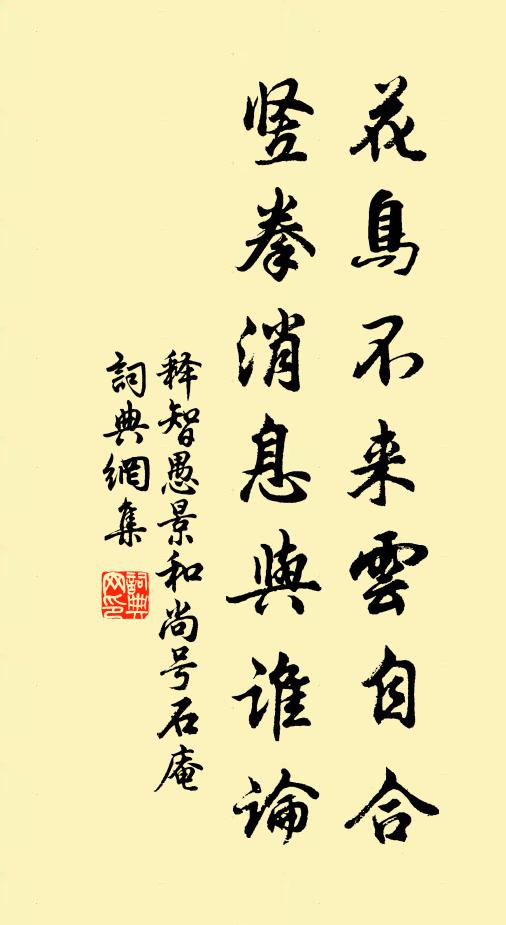 花鳥不来雲自合
竖拳消息與誰論
释智愚景和尚号石庵
詞典網集
詞典
网印